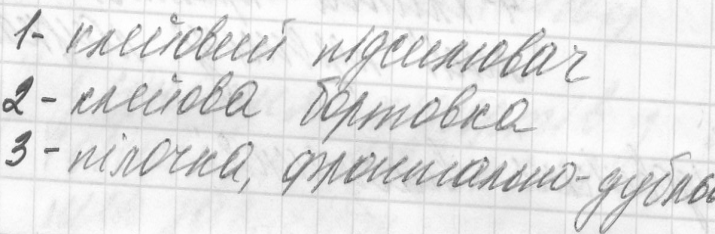 1- клейовий підсилювач
2- клейова бортовка
3- пілочка, фронтально-дубльо